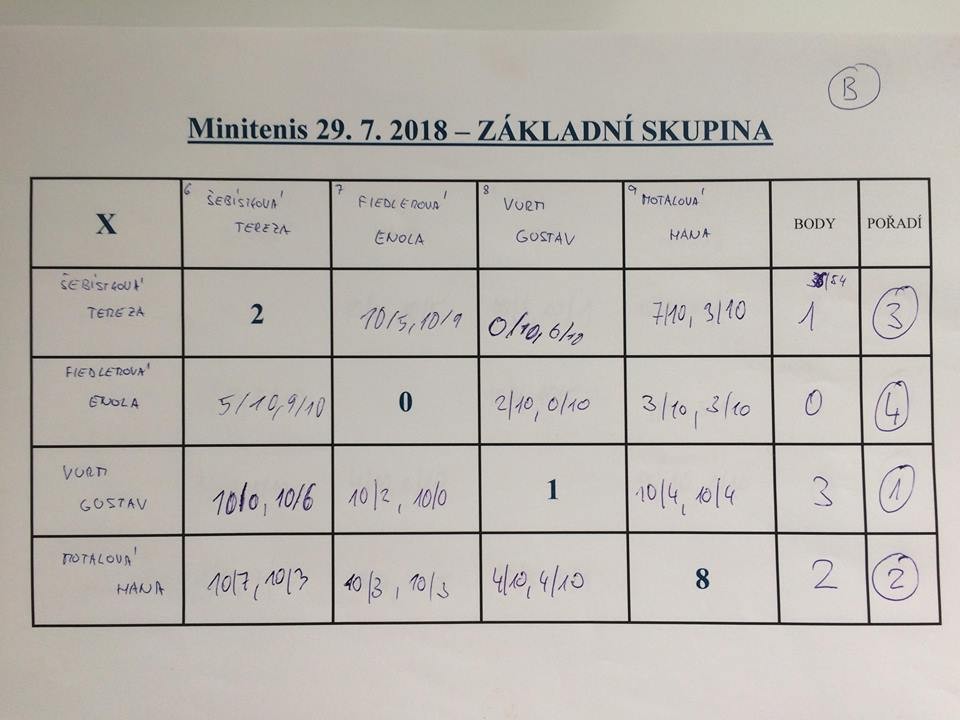 B
Minitenis 29. 7. 2018 – ZÁKLADNÍ SKUPINA
X
6 ŠEBÍSTKOVÁ
TEREZA
7 FIEDLEROVÁ
ENOLA
8 VURM
GUSTAV
9 MOTALOVÁ
HANA
BODY
POŘADÍ
ŠEBÍSTKOVÁ
TEREZA
2
10/5, 10/9
0/10, 6/10
7/10, 3/10
/54
1
3
FIEDLEROVÁ
ENOLA
5/10, 9/10
0
2/10, 0/10
3/10, 3/10
0
4
VURM
GUSTAV
10/0, 10/6
10/2, 10/0
1
10/4, 10/4
3
1
MOTALOVÁ
HANA
10/7, 10/3
10/3, 10/3
4/10, 4/10
8
2
2